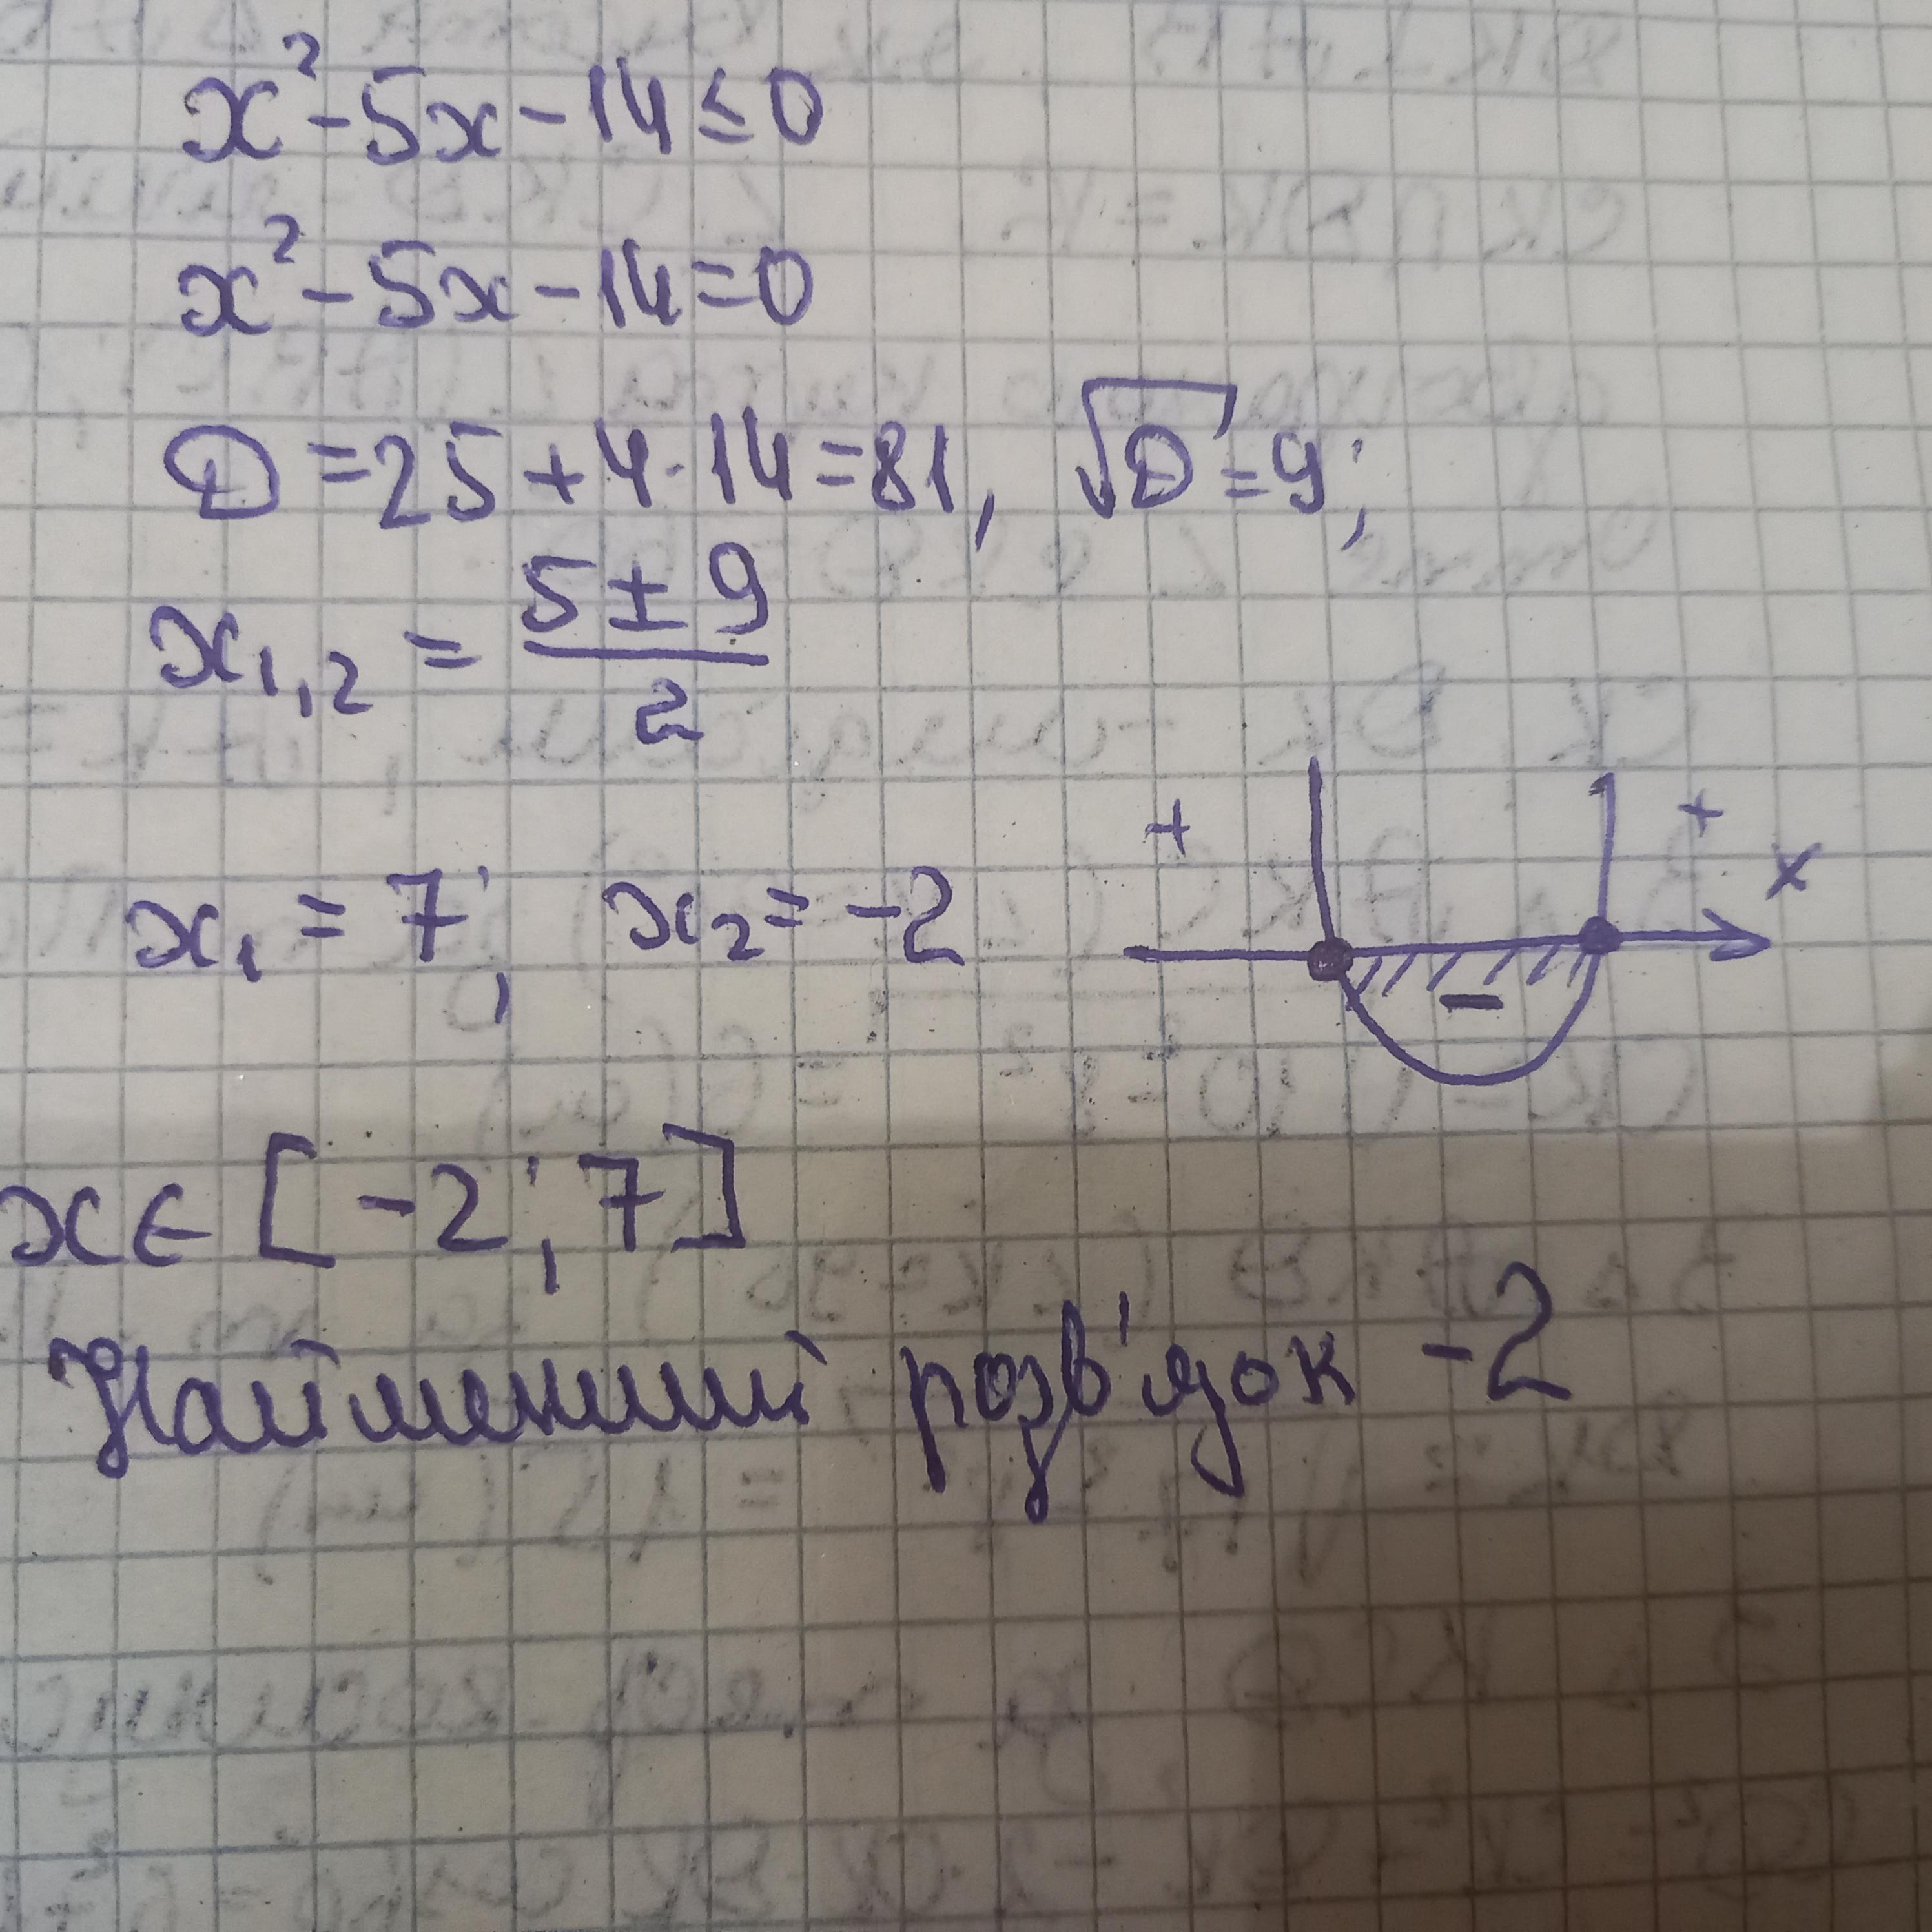 x² - 5x - 14 ≤ 0
x² - 5x - 14 = 0
D = 25 + 4·14 = 81, √D = 9;
x₁,₂ = (5 ± 9)/2
x₁ = 7; x₂ = -2
+ + x
−
x ∈ [-2; 7]
Найменший розв'язок -2